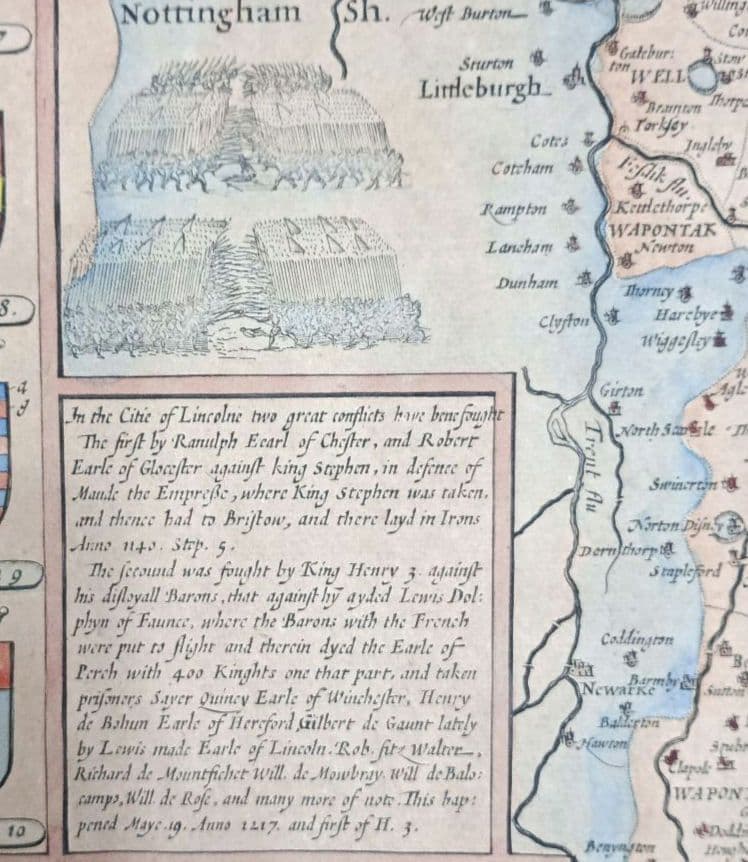 Nottingham Sh.
West Burton
Sturton
Littleburgh
Cotes
Coteham
Rampton
Laneham
Dunham
Clyfton
Willing
Gatebur:
ton
WELL
Bramton
Thorpe
Torksey
Ingleby
Fosdik flu.
Kettlethorpe
WAPONTAK
Newton
Thorney
Harebye
Wiggesley
Girton
North Scarle
Trent flu
Swinerton
Norton Disney
Dornthorp
Stapleford
Coddington
Newarke
Barmby
Sutton
Balderton
Hawton
Clapole
WAPON
Benyngton
8.
9
10
In the Citie of Lincolne two great conflicts have bene fought
The first by Ranulph Eearl of Chester, and Robert
Earle of Glocester against king Stephen, in defence of
Maude the Empreße, where King Stephen was taken,
and thence had to Bristow, and there layd in Irons
Anno 1140. Step. 5.
The secound was fought by King Henry 3. against
his disloyall Barons, that against hỹ ayded Lewis Dol:
phyn of Faunce, where the Barons with the French
were put to flight and therein dyed the Earle of
Perch with 400 Kinghts one that part, and taken
prisoners Sayer Quincy Earle of Winchester, Henry
de Bohun Earle of Hereford Gilbert de Gaunt lately
by Lewis made Earle of Lincoln. Rob. fitz Walter,
Richard de Mountfichet Will. de Mowbray. Will de Balo:
camps, Will. de Rose, and many more of note. This hap:
pened Maye. 19. Anno 1217. and first of H. 3.